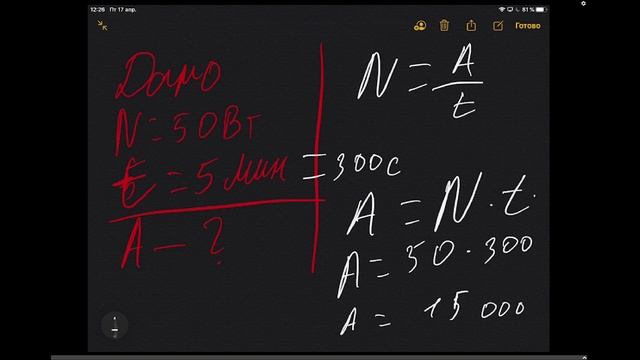 12:26 Пт 17 апр.
81 %
Готово
Дано
N = 50 Вт
t = 5 мин = 300 с
A - ?
N = A / t
A = N · t.
A = 50 · 300
A = 15 000